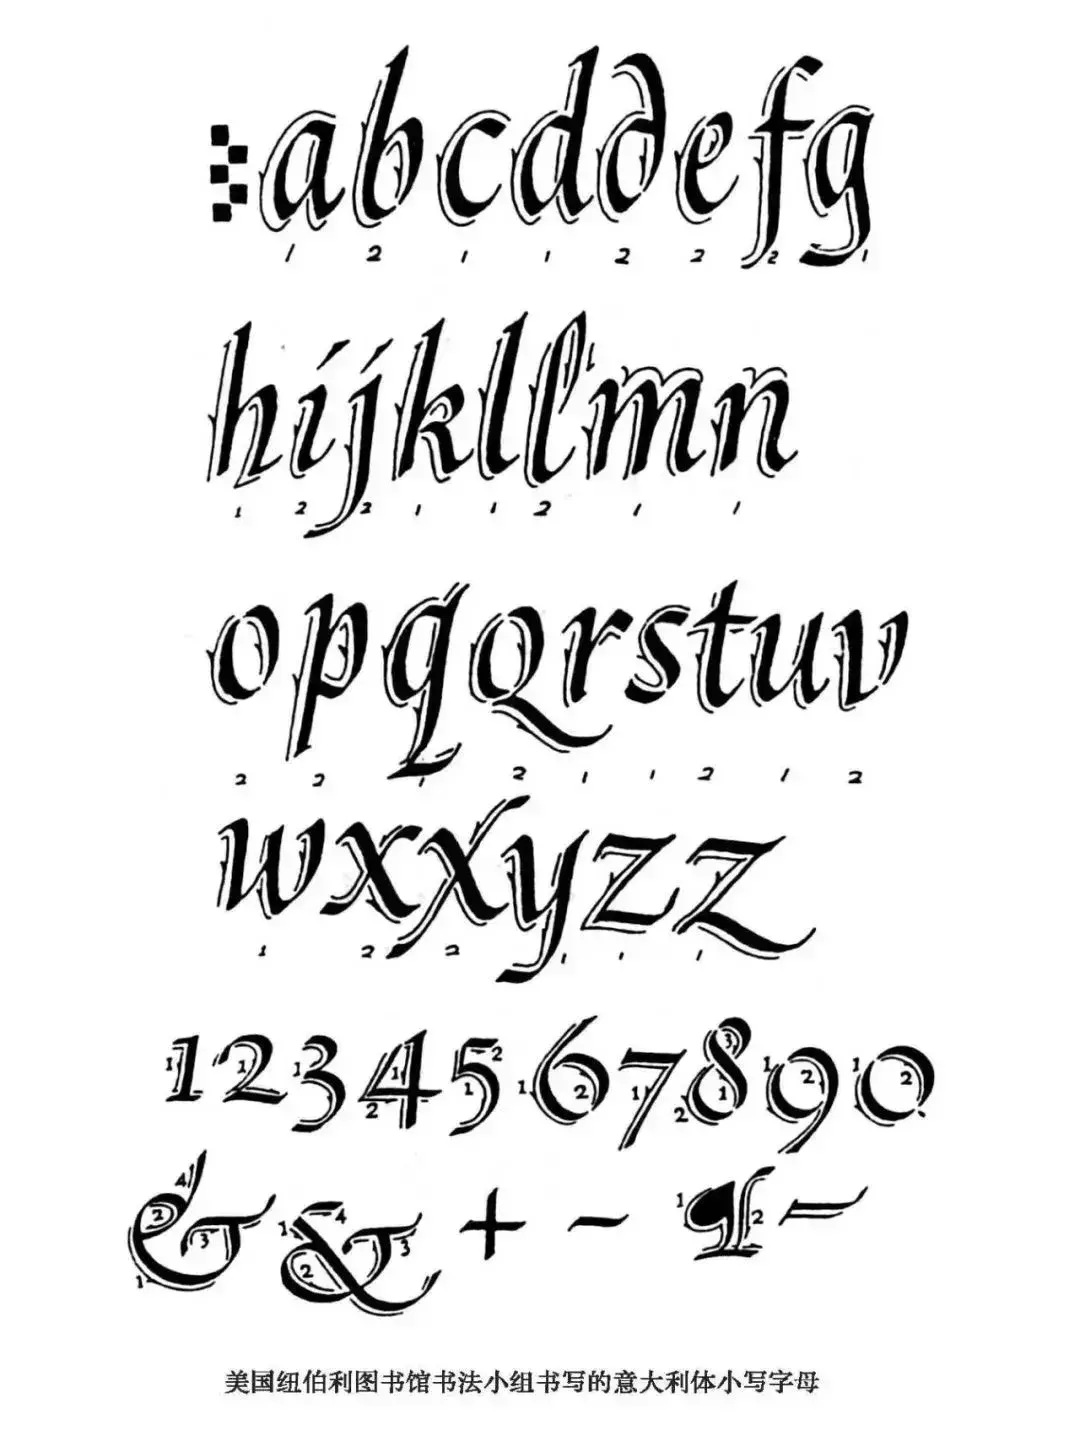 abcddefg
1 2 1 1 2 2 2 1
hijkllmn
1 2 2 1 1 2 1 1
opqqrstuv
2 2 1 2 1 1 2 1 2
wxxyzz
1 2 2 1 1 1
1234567890
& & + - ¶ =
美国纽伯利图书馆书法小组书写的意大利体小写字母